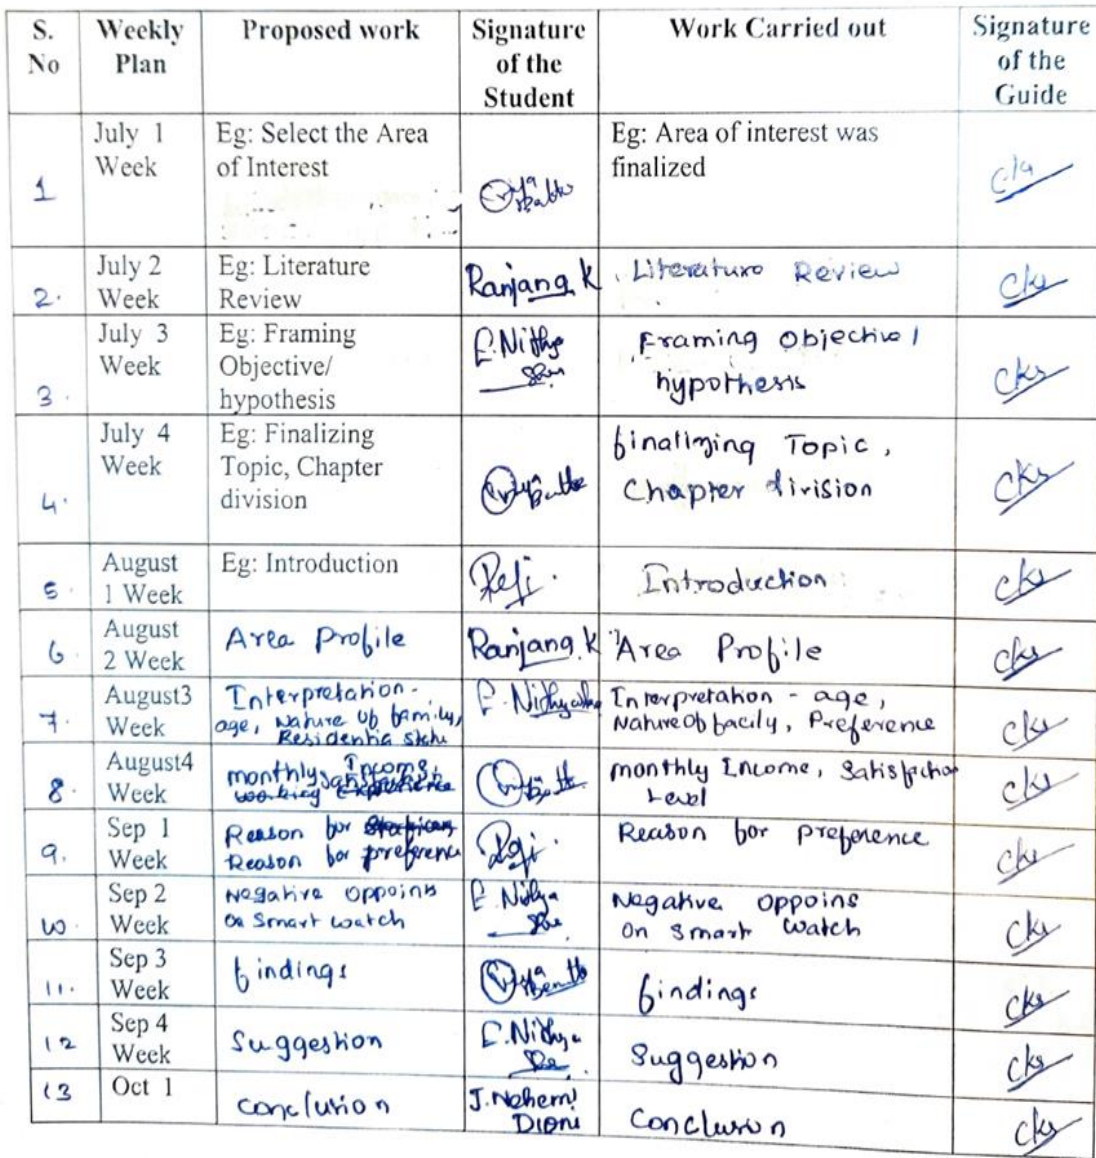 S. No
Weekly Plan
Proposed work
Signature of the Student
Work Carried out
Signature of the Guide
1
July 1 Week
Eg: Select the Area of Interest
Eg: Area of interest was finalized
2.
July 2 Week
Eg: Literature Review
Ranjang K
Literature Review
Cks
3.
July 3 Week
Eg: Framing Objective/ hypothesis
E. Nithya
Framing Objective/ hypothesis
Cks
4.
July 4 Week
Eg: Finalizing Topic, Chapter division
finalizing Topic, Chapter division
Cks
5.
August 1 Week
Eg: Introduction
Introduction
Cks
6.
August 2 Week
Area Profile
Ranjang K
Area Profile
Cks
7.
August3 Week
Interpretation - age, Nature of family,
E. Nithya
Interpretation - age, Nature of facily, Preference
Cks
8.
August4 Week
monthly Income,
monthly Income, Satisfaction Level
Cks
9.
Sep 1 Week
Reason for
Reason for preference
Reason for preference
Cks
10.
Sep 2 Week
Negative oppoins on Smart watch
E. Nithya
Negative oppoins on smart watch
Cks
11.
Sep 3 Week
findings
findings
Cks
12
Sep 4 Week
Suggestion
E. Nithya
Suggestion
Cks
13
Oct 1
conclution
J. Nehemi
Conclusion
Cks